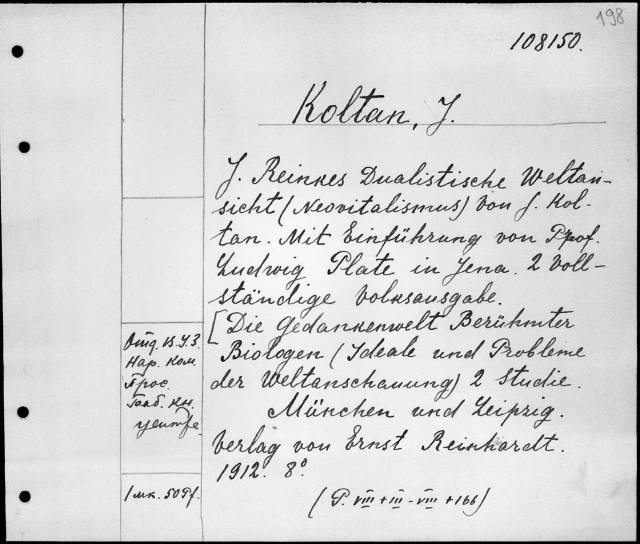 198
108150.
Koltan, J.
J. Reinkes Dualistische Weltan-
sicht (Neovitalismus) von J. Kol-
tan. Mit Einführung von Prof.
Ludwig Plate in Jena. 2 Voll-
ständige Volksausgabe.
[Die Gedankenwelt Berühmter
Biologen (Ideale und Probleme
der Weltanschauung) 2 Studie.
München und Leipzig.
Verlag von Ernst Reinhardt.
1912. 8°.
(P. VIII + III - VIII + 166)
Нар. Ком.
Прос.
кн.
1 мк. 50 Pf.